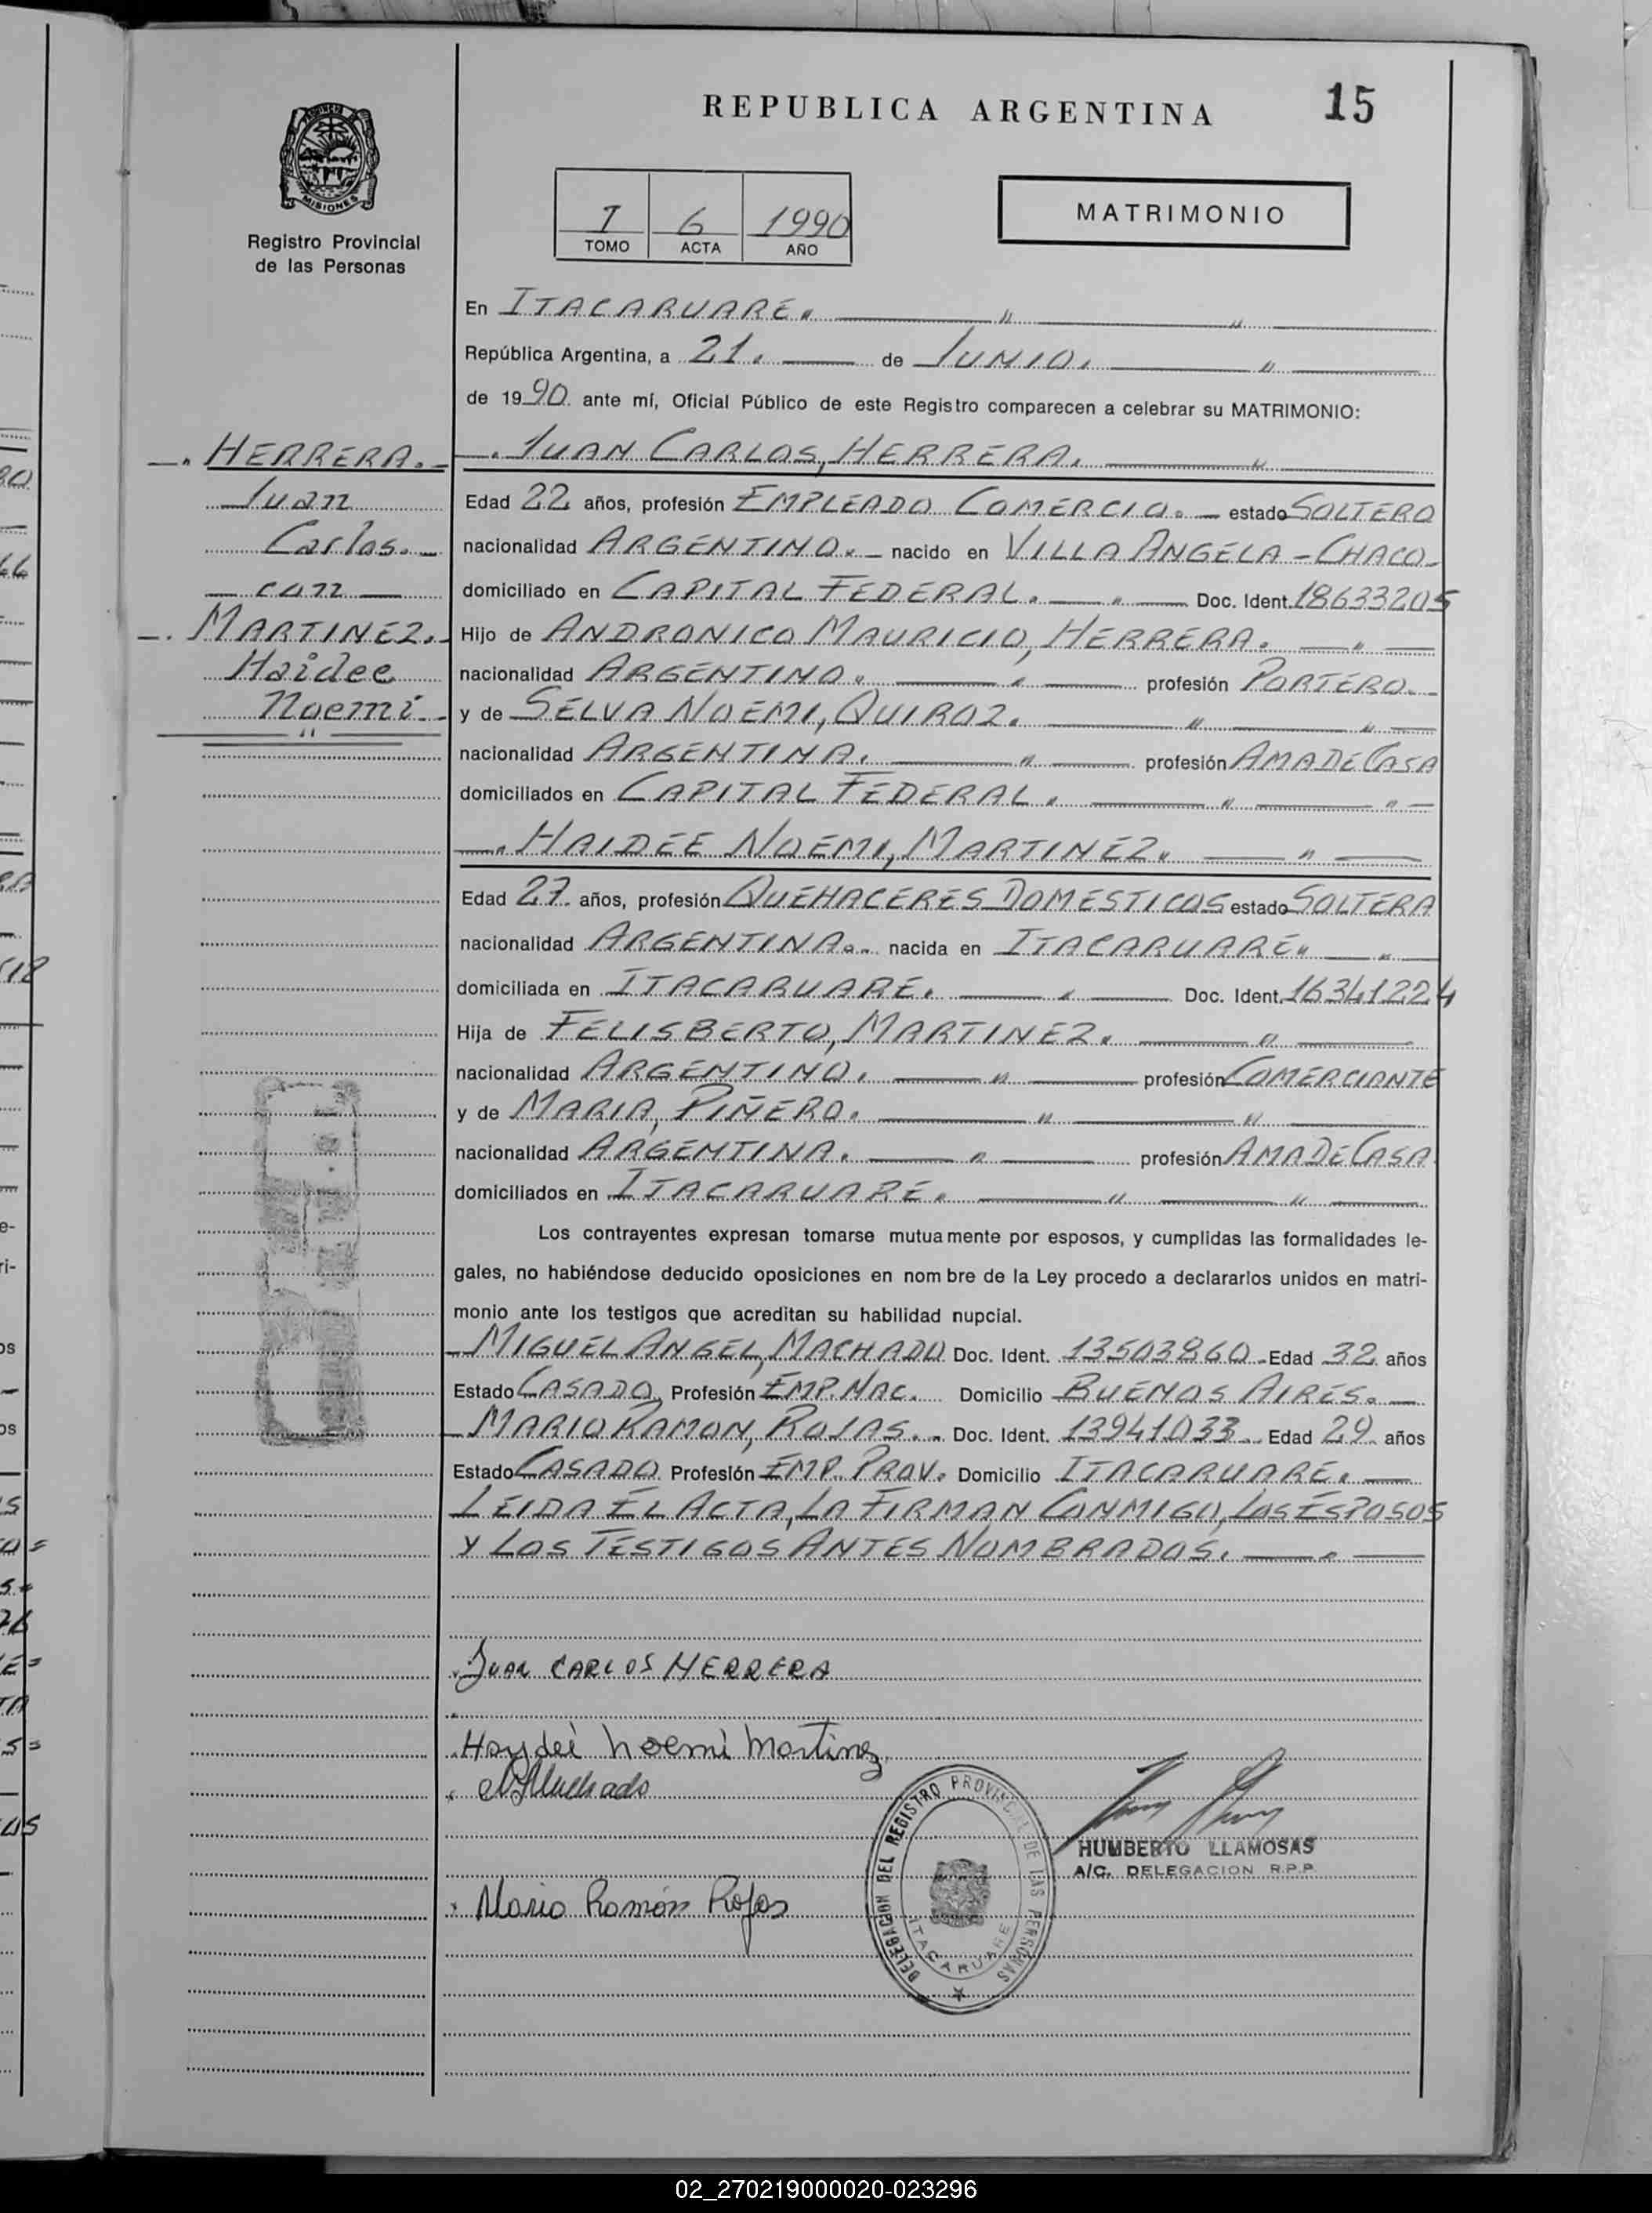 REPUBLICA ARGENTINA
15
MISIONES
Registro Provincial
de las Personas
I 6 1990
TOMO ACTA AÑO
MATRIMONIO
En ITACARUARE.
República Argentina, a 21. de JUNIO.
de 1990 ante mí, Oficial Público de este Registro comparecen a celebrar su MATRIMONIO:
HERRERA.
Juan
Carlos.
con
MARTINEZ.
Haidee
Noemi
JUAN CARLOS, HERRERA.
Edad 22 años, profesión EMPLEADO COMERCIO. estado SOLTERO
nacionalidad ARGENTINO. nacido en VILLA ANGELA - CHACO
domiciliado en CAPITAL FEDERAL. Doc. Ident. 18633205
Hijo de ANDRONICO MAURICIO, HERRERA.
nacionalidad ARGENTINO. profesión PORTERO.
y de SELVA NOEMI, QUIROZ.
nacionalidad ARGENTINA. profesión AMA DE CASA
domiciliados en CAPITAL FEDERAL.
HAIDEE NOEMI, MARTINEZ.
Edad 27. años, profesión QUEHACERES DOMESTICOS estado SOLTERA
nacionalidad ARGENTINA. nacida en ITACARUARE.
domiciliada en ITACARUARE. Doc. Ident. 16341224
Hija de FELISBERTO, MARTINEZ.
nacionalidad ARGENTINO. profesión COMERCIANTE
y de MARIA, PIÑERO.
nacionalidad ARGENTINA. profesión AMA DE CASA
domiciliados en ITACARUARE.
Los contrayentes expresan tomarse mutuamente por esposos, y cumplidas las formalidades le-
gales, no habiéndose deducido oposiciones en nombre de la Ley procedo a declararlos unidos en matri-
monio ante los testigos que acreditan su habilidad nupcial.
MIGUEL ANGEL, MACHADO Doc. Ident. 13503860 Edad 32 años
Estado CASADO, Profesión EMP. NAC. Domicilio BUENOS AIRES.
MARIO RAMON, ROJAS. Doc. Ident. 13941033 Edad 29 años
Estado CASADO Profesión EMP. PROV. Domicilio ITACARUARE.
LEIDA EL ACTA, LA FIRMAN CONMIGO, LOS ESPOSOS
Y LOS TESTIGOS ANTES NOMBRADOS.
JUAN CARLOS HERRERA
Haydeé Noemi Martinez
Machado
Mario Ramón Rojas
DELEGACION DEL REGISTRO PROVINCIAL DE LAS PERSONAS
ITACARUARE
HUMBERTO LLAMOSAS
A/C. DELEGACION R.P.P.
02_270219000020-023296